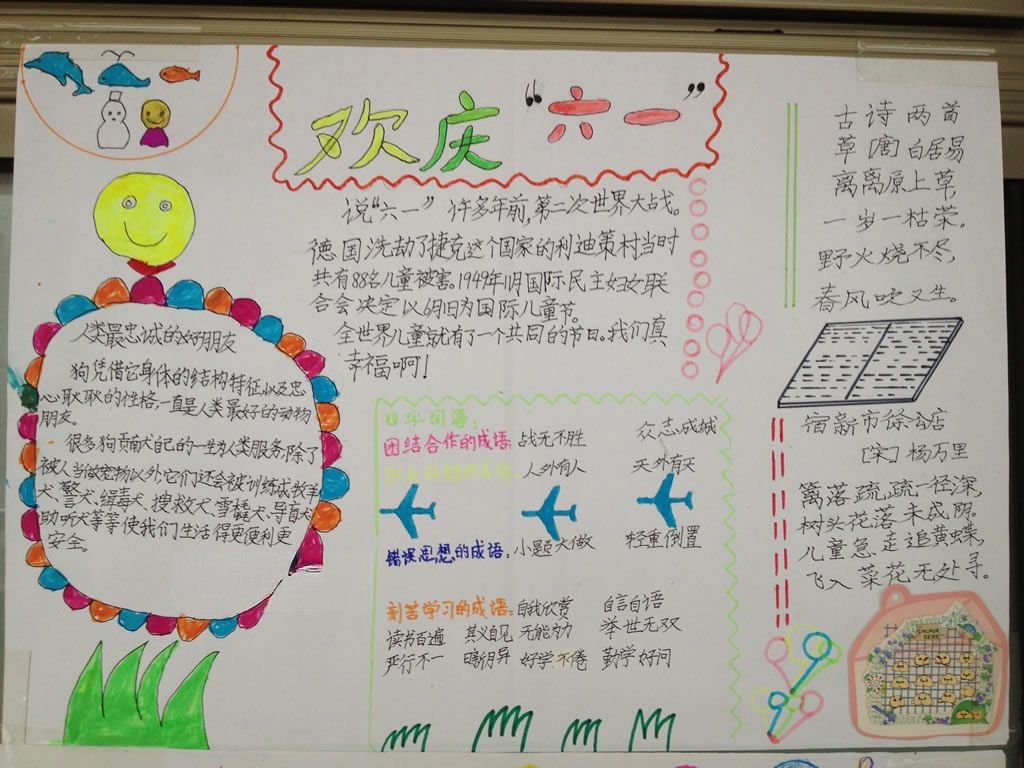 欢庆“六一”
说“六一”许多年前,第二次世界大战。
德国洗劫了捷克这个国家的利迪策村,当时
共有88名儿童被害。1949年11月国际民主妇女联
合会决定以6月1日为国际儿童节。
全世界儿童就有了一个共同的节日。我们真
幸福啊!
人类最忠诚的好朋友
狗凭借它身体的结构特征,以及忠
心耿耿的性格,一直是人类最好的动物
朋友。
很多狗贡献犬自己的一生为人类服务,除了
被人当做宠物以外,它们还会被训练成牧羊
犬、警犬、缉毒犬、搜救犬、雪橇犬、导盲犬
助听犬等等使我们生活得更便利更
安全。
四字词语:
团结合作的成语: 战无不胜 众志成城
人外有人 天外有天
错误思想的成语: 小题大做 轻重倒置
刻苦学习的成语: 自我欣赏 自言自语
读书百遍 其义自见 无能为力 举世无双
严行不一 好学不倦 勤学好问
古诗两首
草 [唐] 白居易
离离原上草,
一岁一枯荣。
野火烧不尽,
春风吹又生。
宿新市徐公店
[宋] 杨万里
篱落疏疏一径深,
树头花落未成阴。
儿童急走追黄蝶,
飞入菜花无处寻。